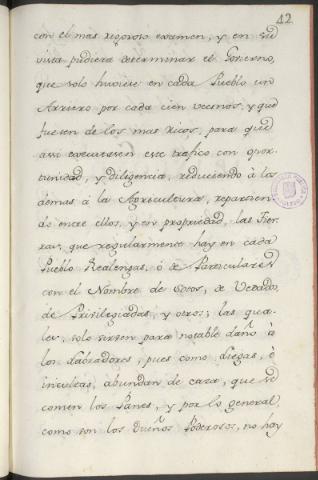 42
con el mas rigoroso examen, y en su
vista pudiera determinar el Govierno,
que solo huviere en cada Pueblo un
Arriero por cada cien vecinos, y que
fuesen de los mas ricos, para que
asi executasen este trafico con opor-
tunidad, y diligencia, reduciendo à los
demas à la Agricultura, repartien-
do entre ellos, y en propriedad, las Tier-
ras, que regularmente hay en cada
Pueblo Realengas, ò de Particulares
con el Nombre de Cotos, de Vedados,
de Privilegiadas, y otros; las qua-
les, solo sirven para notable daño à
los Labradores, pues como Liegas, è
incultas, abundan de caza, que se
comen los Panes, y por lo general
como son los Dueños Poderosos, no hay